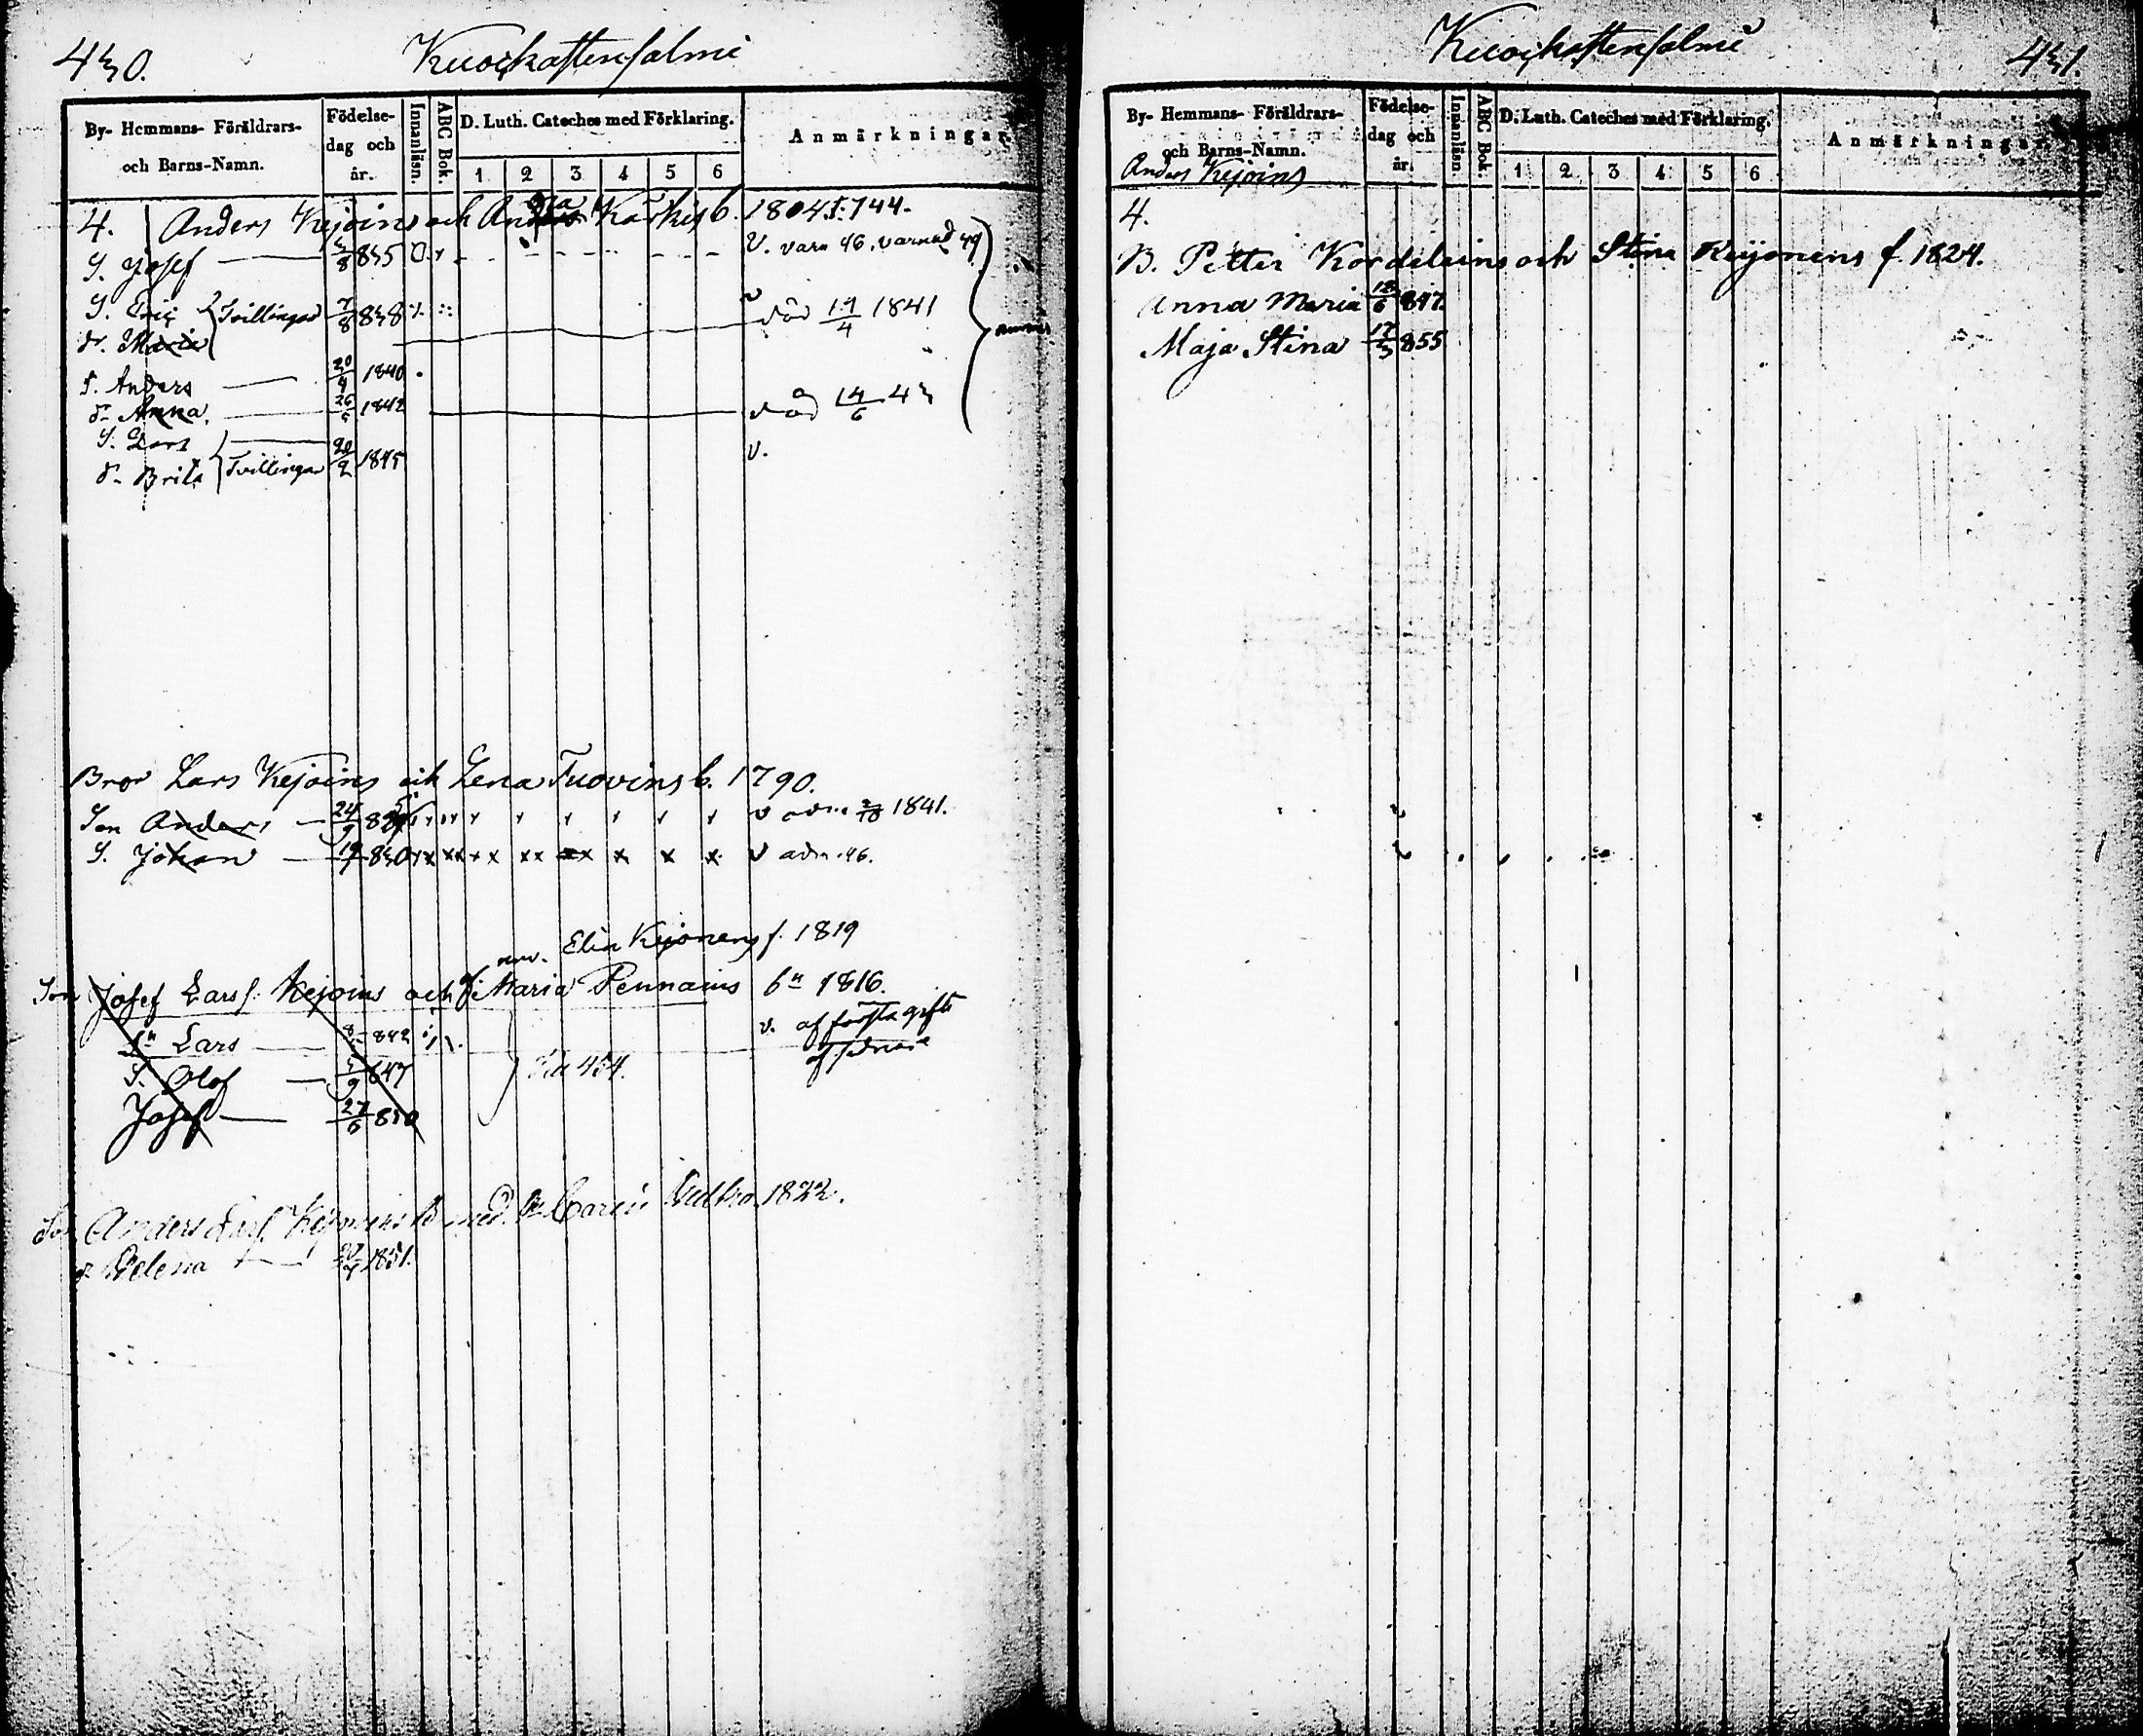 430. Kuoçkastensalmi
By- Hemmans- Föräldrars- och Barns-Namn. Födelse- dag och år. Innanläsn. ABC Bok. D. Luth. Cateches med Förklaring. 1 2 3 4 5 6 Anmärkningar.
4. Anders Kejoins och Kärkis b. 1804. I. 744.
S. Josef 3/8 835 V. varn 46, varnad 49
S. Eric Tvillingar 7/8 838 v
dr. Maria död 14/4 1841
S. Anders 20/4 1840
dr. Anna 26/5 1842 död 14/6 43
S. Lars Tvillingar 20/2 1845 v.
dr. Brita
Bror Lars Kejoins och Lena Tuovins b. 1790.
Son Anders 24/9 v adm 1841.
S. Johan 830 v adm. 46.
Elin Kejonens f. 1819
Son Josef Larss. Kejoins och Maria Pennains b. 1816.
Sn Lars 842 v. af första gifte
S. Olof 5/9 847 af senare
Josef 27/6 850
454.
Son Anders Kejonens med Carin 1822.
dr. Helena 1851.
Kuoçkastensalmi 431.
By- Hemmans- Föräldrars- och Barns-Namn. Födelse- dag och år. Innanläsn. ABC Bok. D. Luth. Cateches med Förklaring. 1 2 3 4 5 6 Anmärkningar.
Anders Kejoins
4.
B. Petter Kordelains och Stina Keijonens f. 1824.
Anna Maria 12/6 847
Maja Stina 17/3 855